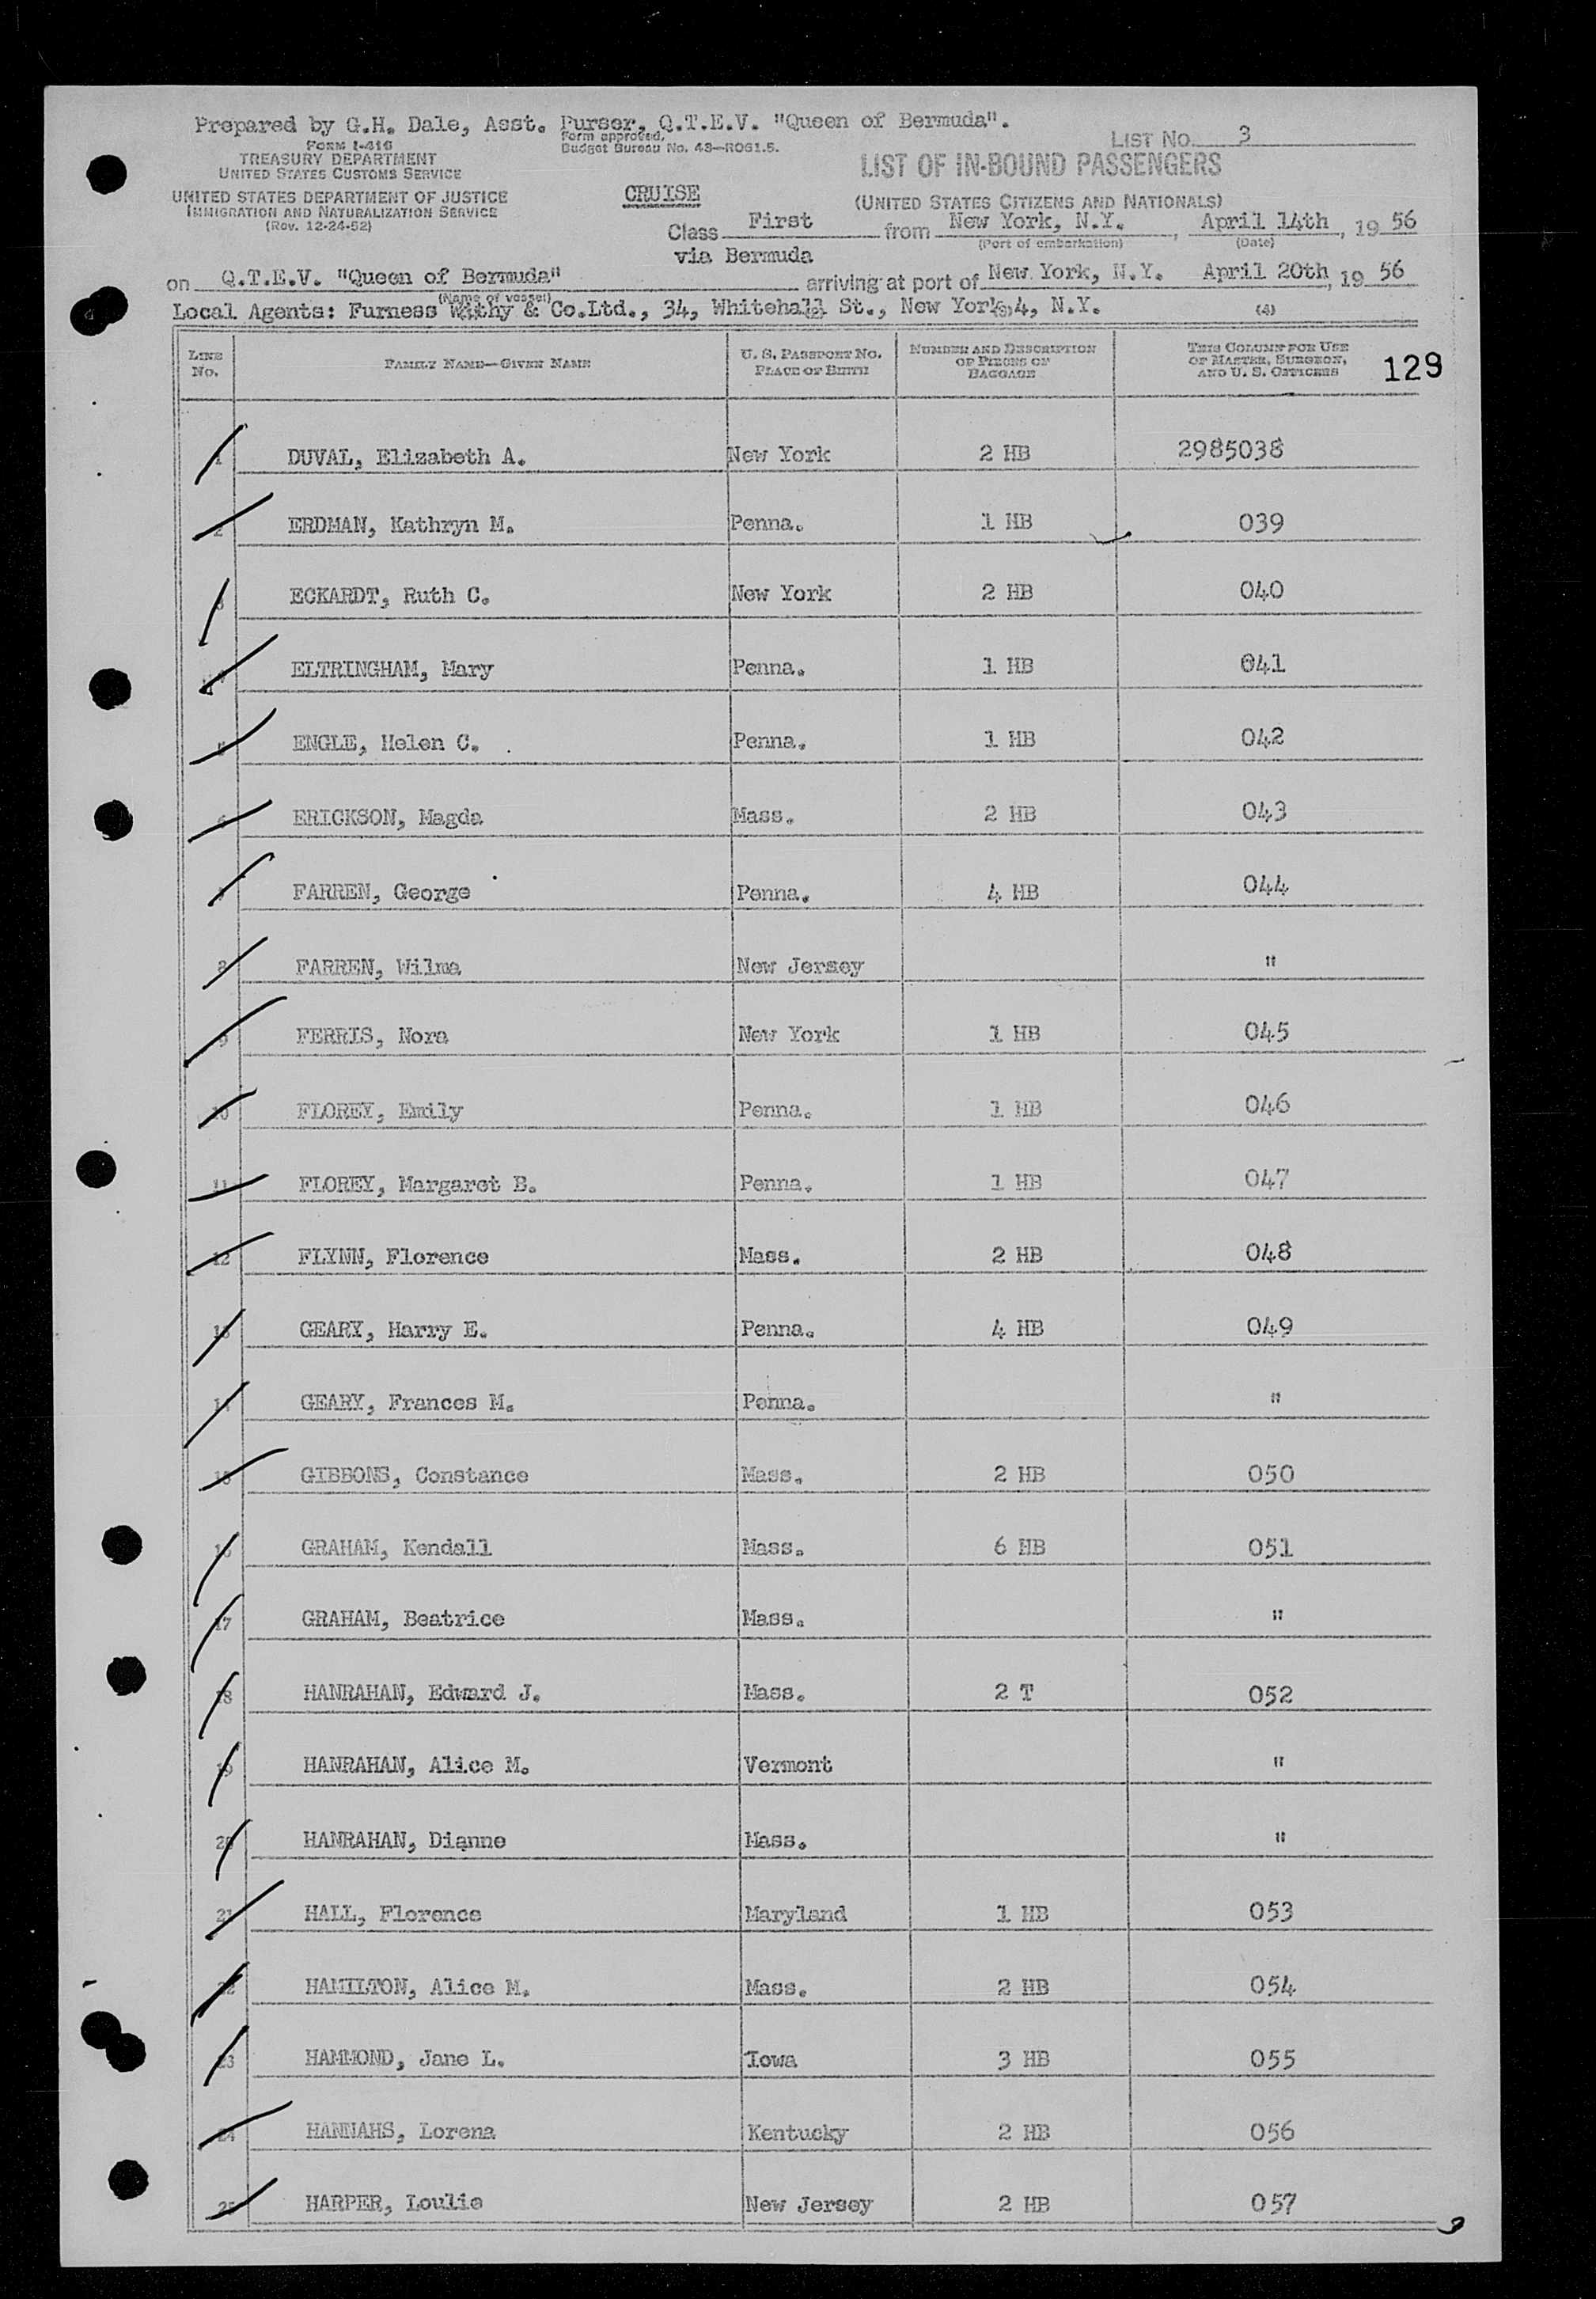 Prepared by G.H. Dale, Asst. Purser, Q.T.E.V. "Queen of Bermuda".
Form approved.
Budget Bureau No. 43—R061.5.
LIST No. 3
FORM I-416
TREASURY DEPARTMENT
UNITED STATES CUSTOMS SERVICE
LIST OF IN-BOUND PASSENGERS
UNITED STATES DEPARTMENT OF JUSTICE
IMMIGRATION AND NATURALIZATION SERVICE
(Rev. 12-24-52)
CRUISE
(UNITED STATES CITIZENS AND NATIONALS)
Class First from New York, N.Y., April 14th, 19 56
(Port of embarkation) (Date)
via Bermuda
on Q.T.E.V. "Queen of Bermuda" arriving at port of New York, N.Y. April 20th, 19 56
(Name of vessel)
Local Agents: Furness Withy & Co.Ltd., 34, Whitehall St., New York 4, N.Y.
(2) (3) (4)
LINE No. FAMILY NAME—GIVEN NAME U. S. PASSPORT No. PLACE OF BIRTH NUMBER AND DESCRIPTION OF PIECES OF BAGGAGE THIS COLUMN FOR USE OF MASTER, SURGEON, AND U. S. OFFICERS 129
1 DUVAL, Elizabeth A. New York 2 HB 2985038
2 ERDMAN, Kathryn M. Penna. 1 HB 039
3 ECKARDT, Ruth C. New York 2 HB 040
4 ELTRINGHAM, Mary Penna. 1 HB 041
5 ENGLE, Helen C. Penna. 1 HB 042
6 ERICKSON, Magda Mass. 2 HB 043
7 FARREN, George Penna. 4 HB 044
8 FARREN, Wilma New Jersey "
9 FERRIS, Nora New York 1 HB 045
10 FLOREY, Emily Penna. 1 HB 046
11 FLOREY, Margaret B. Penna. 1 HB 047
12 FLYNN, Florence Mass. 2 HB 048
13 GEARY, Harry E. Penna. 4 HB 049
14 GEARY, Frances M. Penna. "
15 GIBBONS, Constance Mass. 2 HB 050
16 GRAHAM, Kendall Mass. 6 HB 051
17 GRAHAM, Beatrice Mass. "
18 HANRAHAN, Edward J. Mass. 2 T 052
19 HANRAHAN, Alice M. Vermont "
20 HANRAHAN, Dianne Mass. "
21 HALL, Florence Maryland 1 HB 053
22 HAMILTON, Alice M. Mass. 2 HB 054
23 HAMMOND, Jane L. Iowa 3 HB 055
24 HANNAHS, Lorena Kentucky 2 HB 056
25 HARPER, Loulie New Jersey 2 HB 057